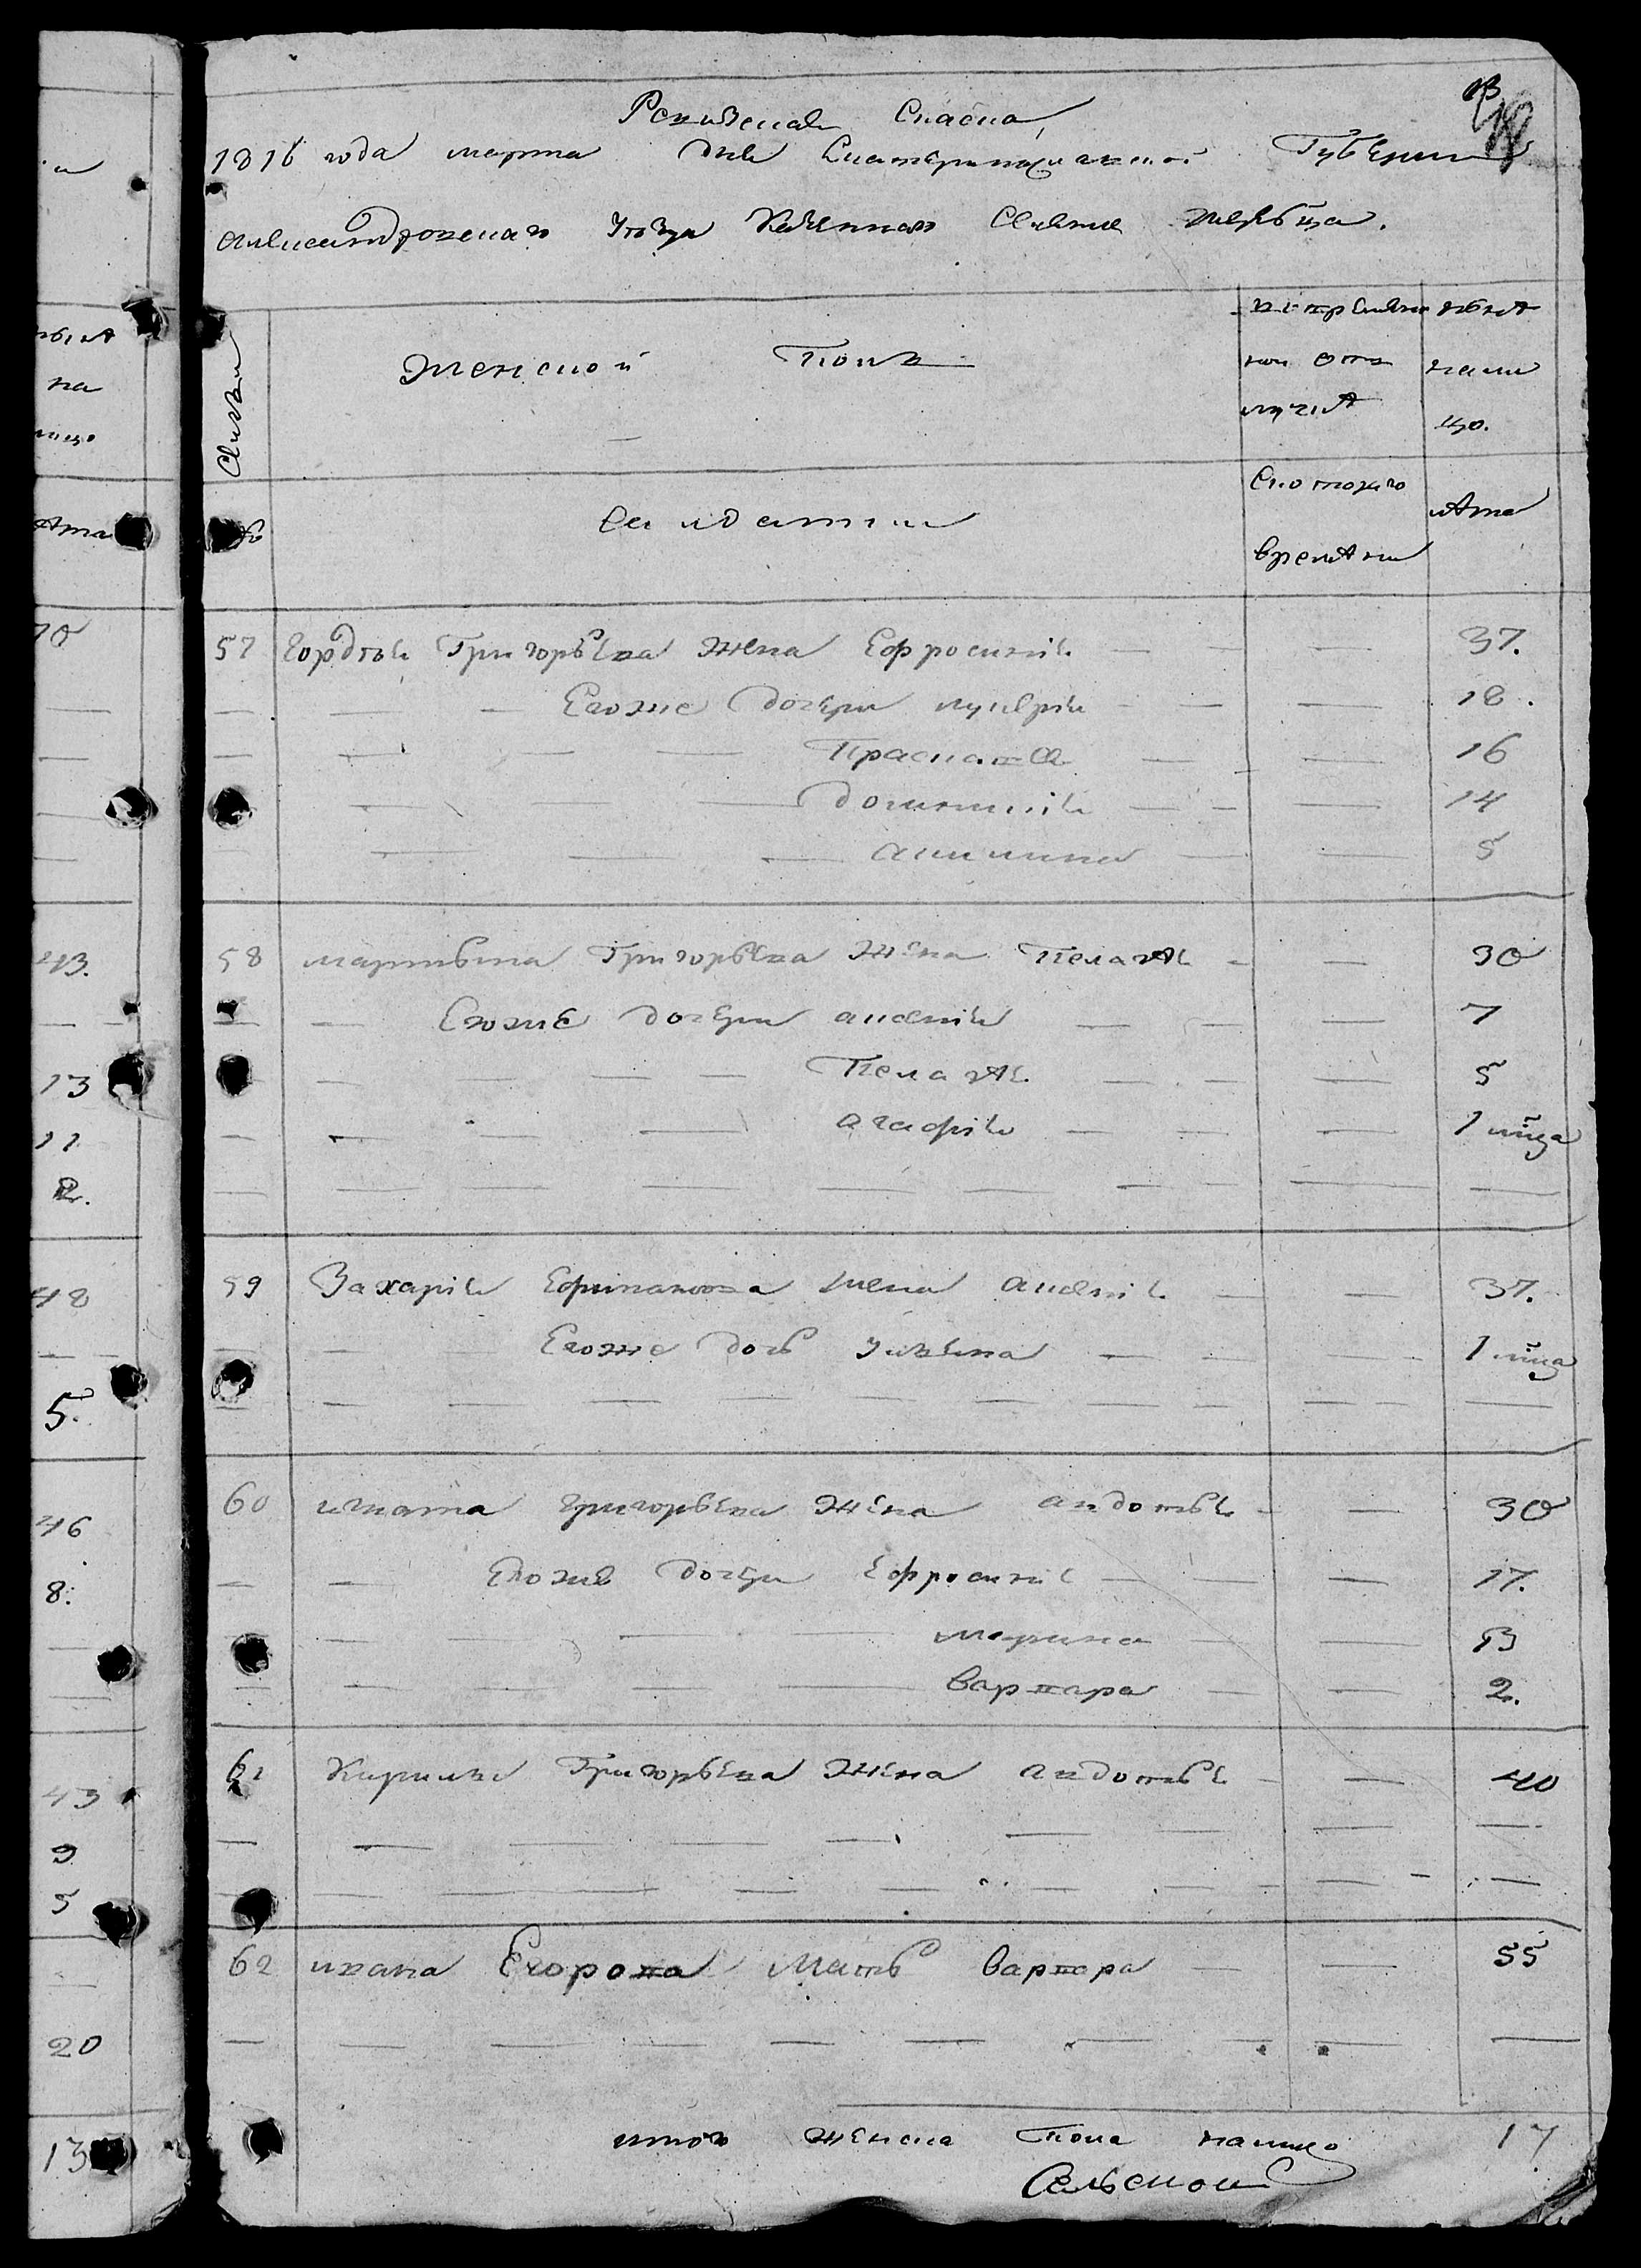 13
Ревизская Сказка,
1816 года марта дня Екатеринославской Губернии
Александровскаго уезда Казеннаго Селения жеребца.
Семьи
Женской Полъ
въ временной отлучке
ныне на лицо.
№
Солдатки
Съ котораго времени
лета
57 Гордея Григорьева жена Ефросиния — — — 37.
— — — Егоже дочери лукерия — — — 18.
— — — — Прасковея — — — 16
— — — Домникия — — — 14
— — — акилина — — 5
58 мартына Григорьева жена Пелагея — — 30
— — Егоже дочери аксения — — — 7
— — — — Пелагея — — — 5
— — — — агафия — — — 1 мца
— — — — — — — — — —
59 Захария Ефимовова жена аксения — — 37.
— — — Егоже дочь улиена — — — 1 мца
— — — — — — — — — — —
60 игната григорьева жена авдотья — — 30
— — Егоже дочери Ефросиния — — — 17.
— — — — — марина — — 13
— — — — — варвара — — 2.
61 Кирилы Григорьева жена авдотья — — 40
— — — — — — — — —
— — — — — — — — — —
62 ивана Егорова Мать варвара — — 55
— — — — — — — — —
итого женска пола налицо 17
Сельской
ныя
на
лицо
лета
70
43.
13
11
2.
48
5.
46
8.
43
9
5
20
13